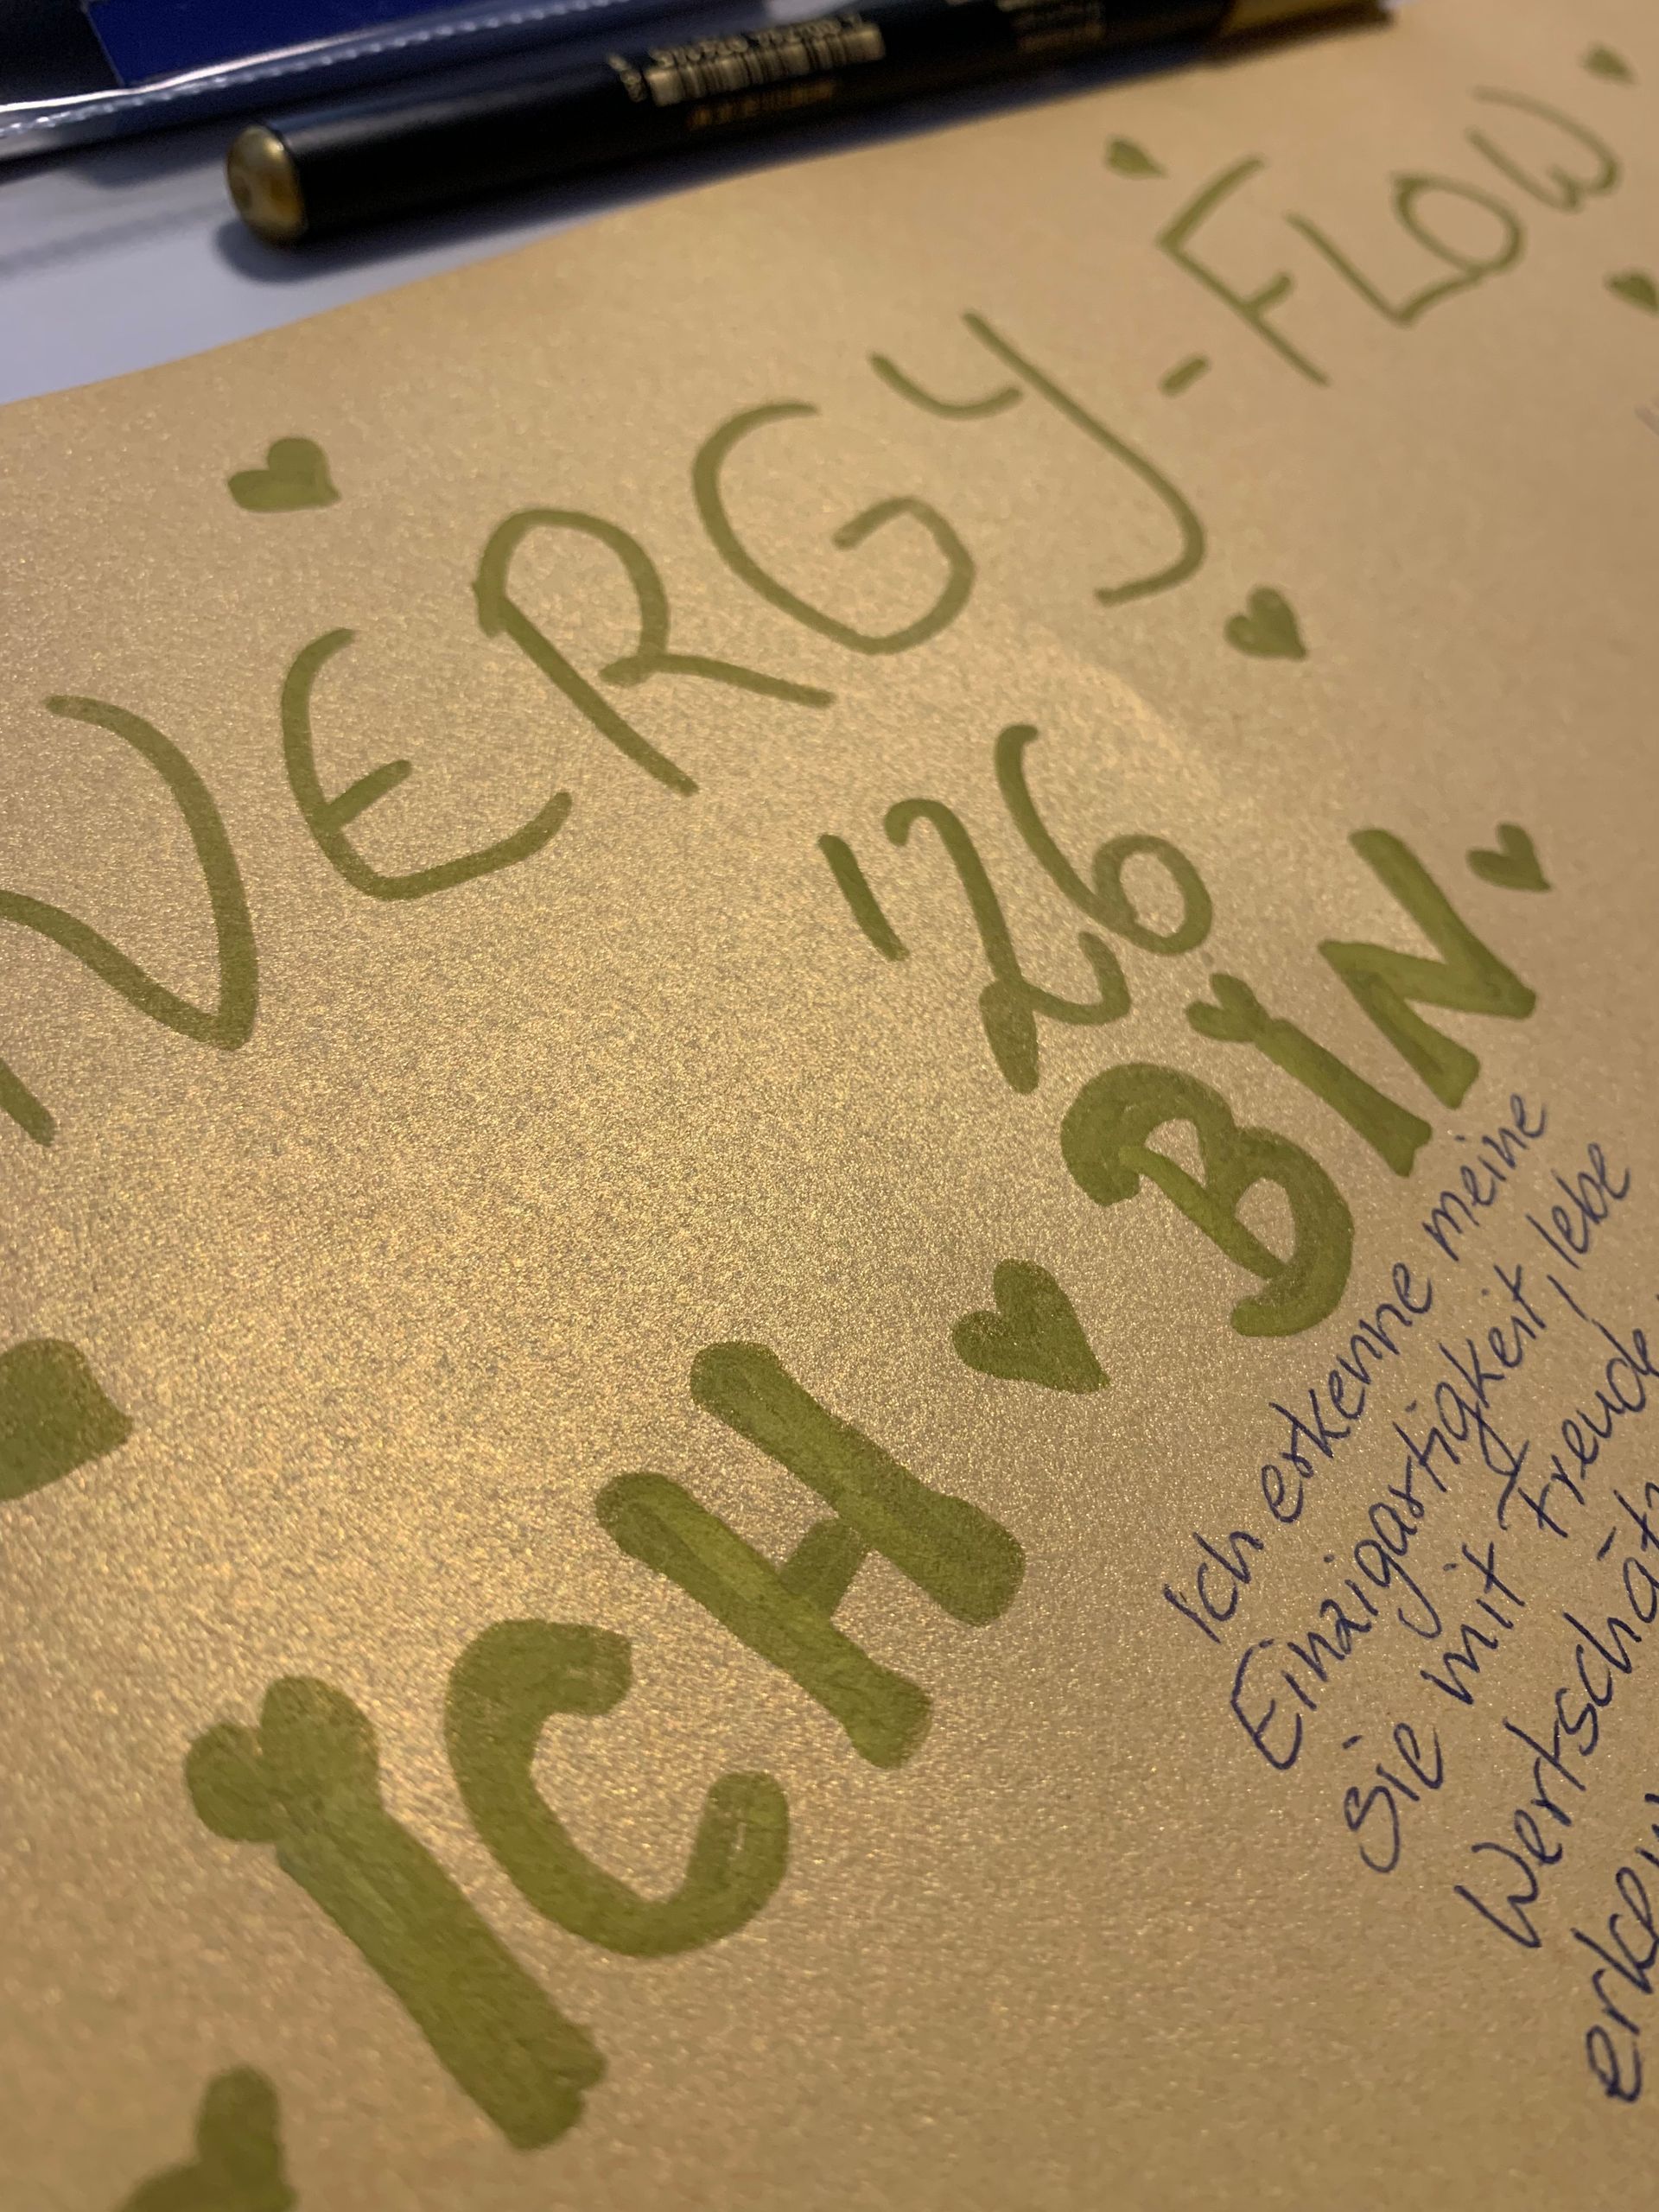 NERGY-FLOW
'26
ICH BIN
Ich erkenne meine
Einzigartigkeit, lebe
sie mit Freude
Wertschät
erken